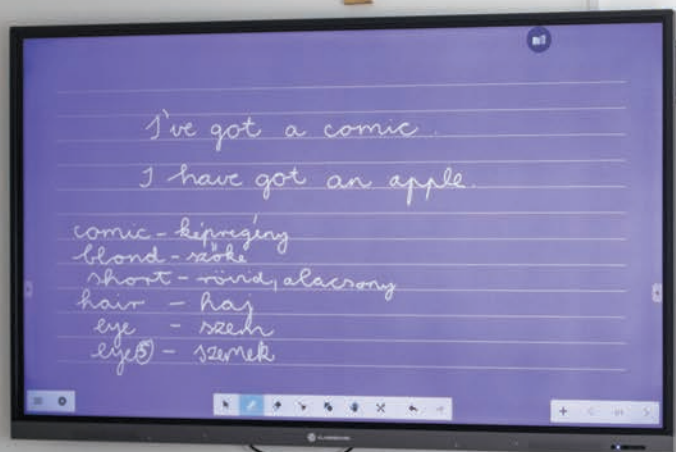 I've got a comic.
I have got an apple.
comic - képregény
blond - szőke
short - rövid, alacsony
hair - haj
eye - szem
eyes - szemek